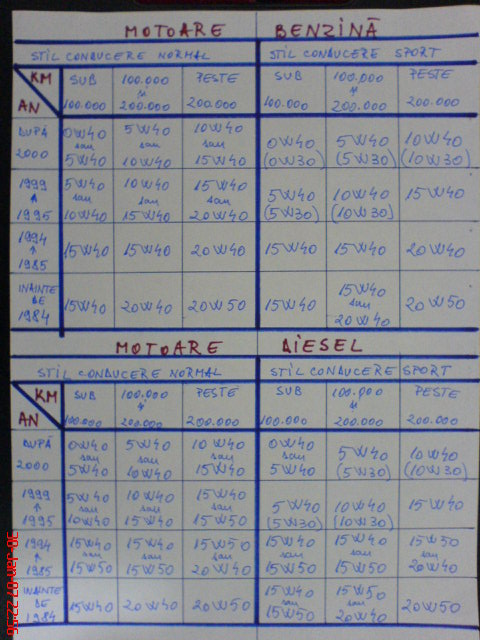 MOTOARE BENZINĂ
STIL CONDUCERE NORMAL STIL CONDUCERE SPORT
KM SUB 100.000 PESTE SUB 100.000 PESTE
și și
AN 100.000 200.000 200.000 100.000 200.000 200.000
DUPĂ 0W40 5W40 10W40 0W40 5W40 10W40
sau sau sau
2000 5W40 10W40 15W40 (0W30) (5W30) (10W30)
1999 5W40 10W40 15W40 5W40 10W40 15W40
sau sau sau
1995 10W40 15W40 20W40 (5W30) (10W30)
1994 15W40 15W40 20W40 15W40 15W40 20W40
1985
INAINTE 15W40 20W40 20W50 15W40 15W40 20W50
DE sau
1984 20W40
MOTOARE DIESEL
STIL CONDUCERE NORMAL STIL CONDUCERE SPORT
KM SUB 100.000 PESTE SUB 100.000 PESTE
și și
AN 100.000 200.000 200.000 100.000 200.000 200.000
DUPĂ 0W40 5W40 10W40 0W40 5W40 10W40
sau sau sau sau
2000 5W40 10W40 15W40 5W40 (5W30) (10W30)
1999 5W40 10W40 15W40 5W40 10W40 15W40
sau sau sau
1995 10W40 15W40 15W50 (5W30) (10W30)
1994 15W40 15W40 15W50 15W40 15W40 15W50
sau sau sau sau sau sau
1985 15W50 15W50 20W40 15W50 15W50 20W40
INAINTE 15W40 20W40 20W50 15W40 15W50 20W50
DE sau sau
1984 15W50 20W40